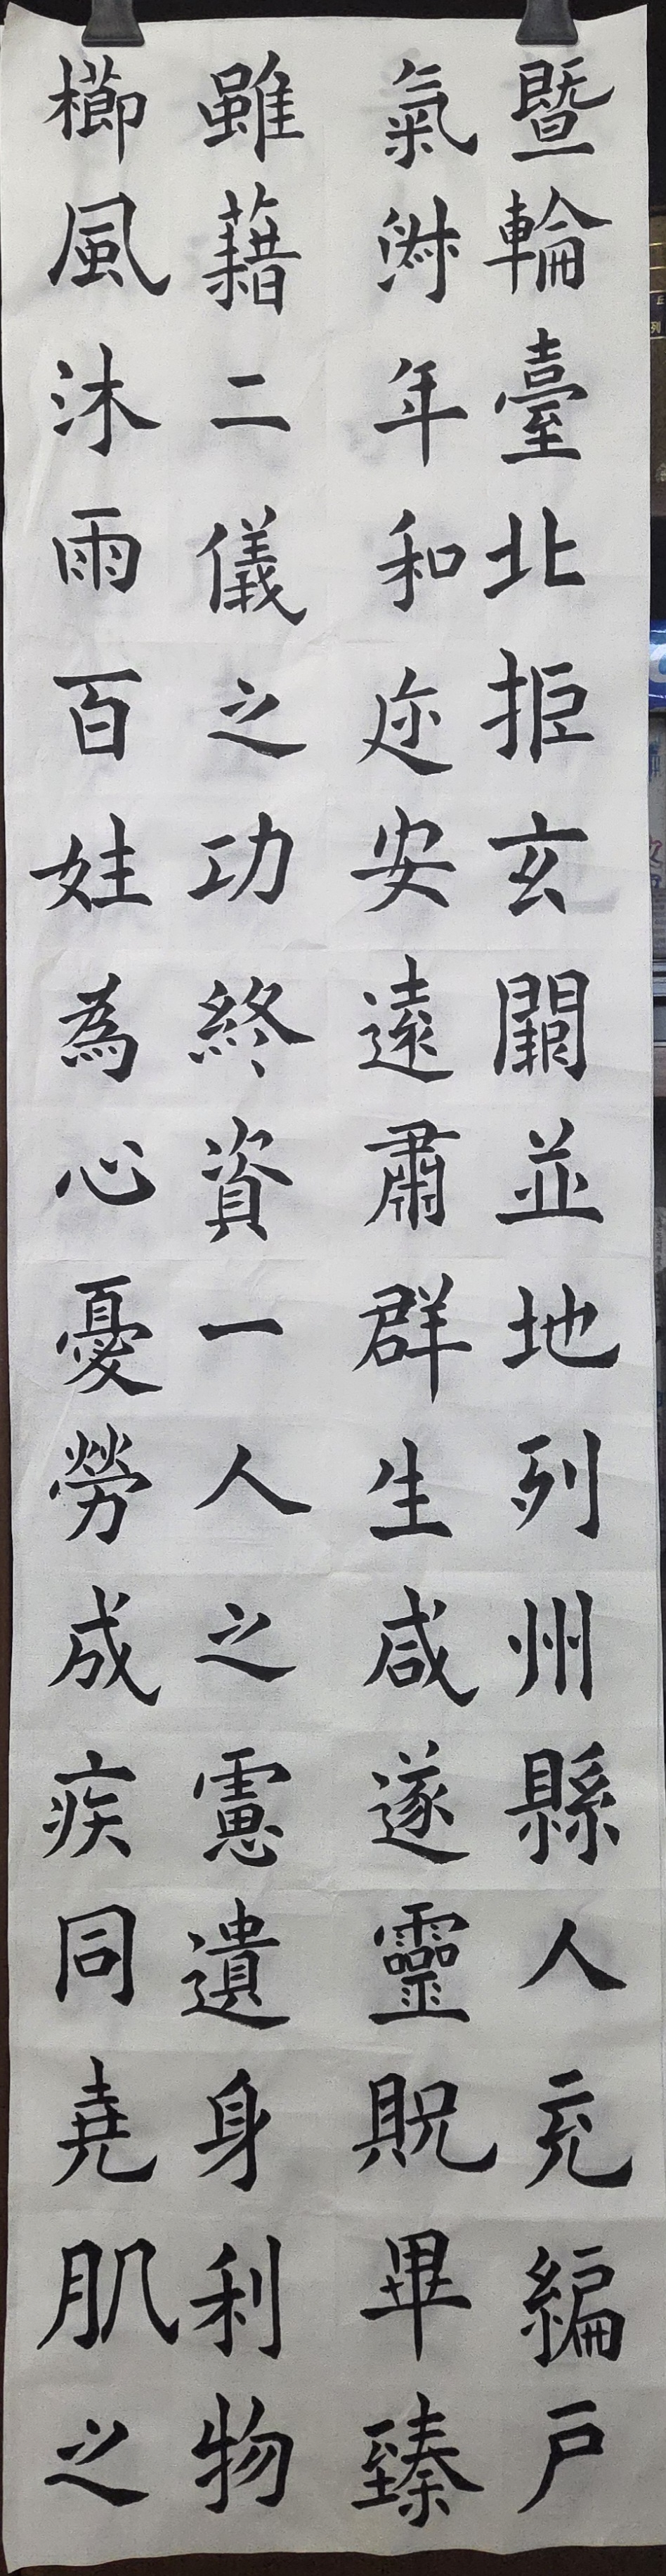 暨輪臺北拒玄闕並地列州縣人充編戶
氣淑年和迩安遠肅群生咸遂靈貺畢臻
雖藉二儀之功終資一人之慮遺身利物
櫛風沐雨百姓為心憂勞成疾同堯肌之